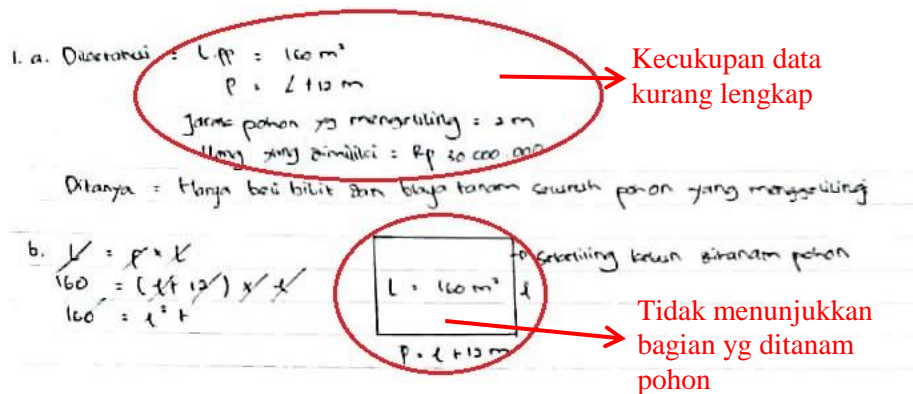 1. a. Diketahui : L.pp = 160 m²
P = l + 12 m
Jarak pohon yg mengeliling = 2 m
Uang yang dimiliki = Rp 30 000 000
Kecukupan data
kurang lengkap
Ditanya = Harga beli bibit dan biaya tanam seluruh pohon yang menggeliling
b. L = p x l
160 = (l + 12) x l
160 = l² +
L = 160 m² l
P = l + 12 m
sekeliling kebun ditanam pohon
Tidak menunjukkan
bagian yg ditanam
pohon